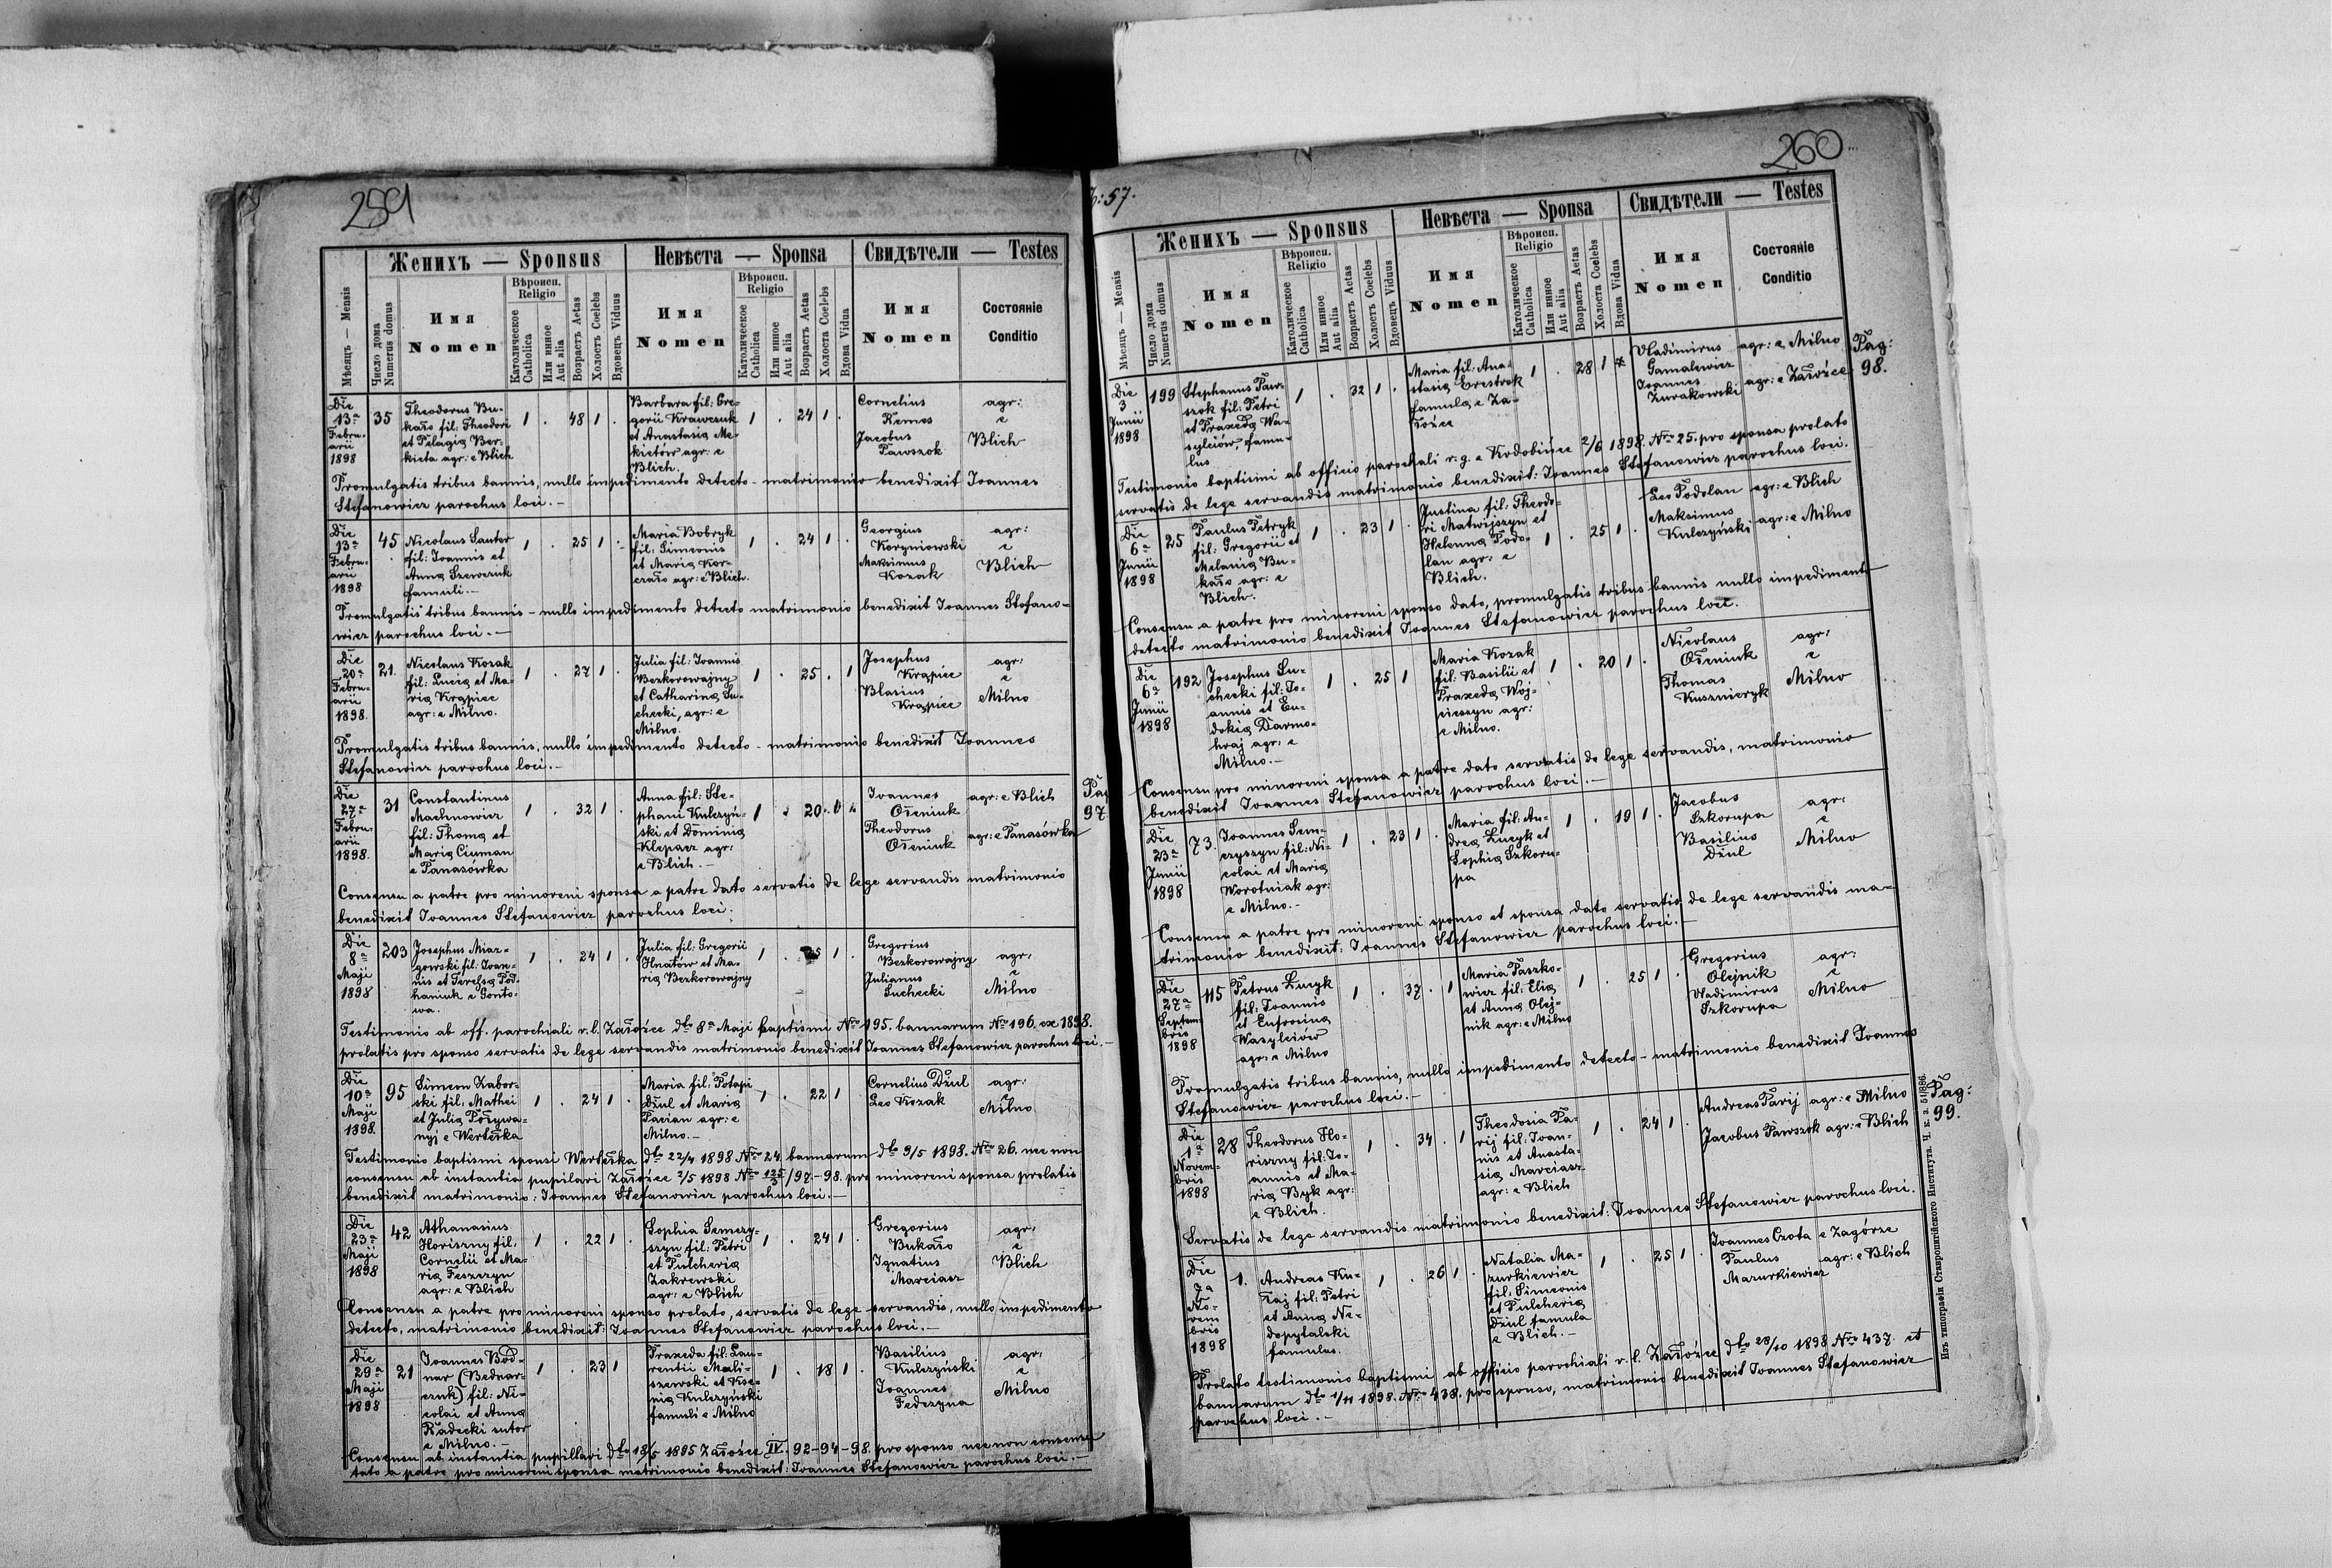 259
Женихъ — Sponsus
Невѣста — Sponsa
Свидѣтели — Testes
Мѣсяцъ — Mensis
Число дома
Numerus domus
Имя
Nomen
Вѣроисп.
Religio
Католическое
Catholica
Или инное
Aut alia
Возрастъ Aetas
Холостъ Coelebs
Вдовецъ Viduus
Имя
Nomen
Вѣроисп.
Religio
Католическое
Catholica
Или инное
Aut alia
Возрастъ Aetas
Холоста Coelebs
Вдова Vidua
Имя
Nomen
Состояніе
Conditio
Die
13a
Febru-
arii
1898
35
Theodorus Bu-
kało fil: Theodori
et Pelagia Ber-
kieta agr: e Blich
1 . 48 1 .
Barbara fil: Gre-
gorii Krawczuk
et Anastasia Me-
kietów agr: e
Blich.
1 . 24 1 .
Cornelius
Remes
Jacobus
Pawszok
agr:
e
Blich
Promulgatis tribus bannis, nullo impedimento detecto - matrimonio benedixit Joannes
Stefanowicz parochus loci. —
Die
13a
Febru-
arii
1898
45
Nicolaus Sauter
fil: Joannis et
Anna Szewczuk
famuli. —
1 . 25 1 .
Maria Bobryk
fil: Simeonis
et Maria Kor-
czało agr: e Blich.
1 . 24 1 .
Georgius
Koryniowski
Maksimus
Kozak
agr:
e
Blich
Promulgatis tribus bannis - nullo impedimento detecto matrimonio benedixit Joannes Stefano-
wicz parochus loci. —
Die
20a
Febru-
arii
1898.
21.
Nicolaus Kozak
fil: Lucia et Ma-
ria Krąpiec
agr: e Milno.
1 . 27 1 .
Julia fil: Joannis
Bezkorowajny
et Catharina Su-
checki, agr: e
Milno.
1 . 25 . 1
Josephus
Krąpiec
Blasius
Krąpiec
agr:
e
Milno
Promulgatis tribus bannis, nullo impedimento detecto - matrimonio benedixit Joannes
Stefanowicz parochus loci. —
Die
27a
Febru-
arii
1898.
31
Constantinus
Machnowicz
fil: Thoma et
Maria Ciuman
e Panasówka
1 . 32 1 .
Anna fil: Ste-
phani Kulczyń-
ski et Dominia
Klepacz agr:
e Blich. —
1 . 20
Joannes
Ołeniuk
Theodorus
Ołeniuk
agr: e Blich
agr: e Panasówka
Pag
97.
Consensu a patre pro minoreni sponsa a patre dato servatis de lege servandis matrimonio
benedixit Joannes Stefanowicz parochus loci.
Die
8a
Maji
1898
203
Josephus Miaz-
gowski fil: Joan-
nis et Teresa Pod-
haniuk e Gonto-
wa.
1 . 24 1 .
Julia fil: Gregorii
Hnatów et Ma-
ria Bezkorowajny
1 . 25 1 .
Gregorius
Bezkorowajny
Julianus
Suchecki
agr:
e
Milno
Testimonio ab off. parochiali r. l. Załoźce dto 8a Maji baptismi Nro 195. bannarum Nro 196. ex 1898.
prolatis pro sponso servatis de lege servandis matrimonio benedixit Joannes Stefanowicz parochus loci. —
Die
10a
Maji
1898.
95
Simeon Zabor-
ski fil: Mathei
et Julia Pożywa-
nyj e Wertełka
1 . 24 1 .
Maria fil: Potapi
Dżul et Maria
Parian agr: e
Milno. —
1 . 22 1
Cornelius Dżul
Leo Kozak
agr:
e
Milno
Testimonio baptismi sponsi Wertełka dto 22/4 1898 Nro 24. bannarum dto 9/5 1898. Nro 26. nec non
consensu ab instantia pupilari Załoźce 2/5 1898 Nro 125/3 /97.-98. pro minoreni sponsa prolatis
benedixit matrimonio: Joannes Stefanowicz parochus loci. —
Die
23a
Maji
1898
42
Athanasius
Horiszny fil:
Cornelii et Ma-
ria Feszczyn
agr: e Blich
1 . 22 1 .
Sophia Semczy-
szyn fil: Petri
et Pulcheria
Zakrewski
agr: e Blich
1 . 24 1 .
Gregorius
Bukało
Ignatius
Marciasz
agr:
e
Blich
Consensu a patre pro minoreni sponso prolato, servatis de lege servandis, nullo impedimento
detecto, matrimonio benedixit: Joannes Stefanowicz parochus loci. —
Die
29a
Maji
1898
21
Joannes Bod-
nar (Bednar-
czuk) fil: Ni-
colai et Anna
Radecki sutor
e Milno. —
1 . 23 1
Praxeda fil: Lau-
rentii Mali-
szewski et Xse-
nia Kulczyński
famuli e Milno
1 . 18 1 .
Basilius
Kulczyński
Joannes
Fedczyna
agr:
e
Milno
Consensu ab instantia pupillari dto 18/5 1895 Załoźce IV. 92-94-98. pro sponso nec non consensu
tato a patre pro minoreni sponsa matrimonio benedixit: Joannes Stefanowicz parochus loci. —
260
57.
Женихъ — Sponsus
Невѣста — Sponsa
Свидѣтели — Testes
Мѣсяцъ — Mensis
Число дома
Numerus domus
Имя
Nomen
Вѣроисп.
Religio
Католическое
Catholica
Или инное
Aut alia
Возрастъ Aetas
Холостъ Coelebs
Вдовецъ Viduus
Имя
Nomen
Вѣроисп.
Religio
Католическое
Catholica
Или инное
Aut alia
Возрастъ Aetas
Холоста Coelebs
Вдова Vidua
Имя
Nomen
Состояніе
Conditio
Die
3
Junii
1898
199
Stephanus Paw-
szok fil: Petri
et Praxeda Wa-
sylciów, famu-
lus
1 . 32 1 .
Maria fil: Ana-
stasia Krestrok
famula e Za-
łoźce
1 . 28 1
Vladimirus
Gamalewicz
Joannes
Zurakowski
agr: e Milno
agr: e Załoźce
Pag:
98.
Testimonio baptismi ab officio parochali r. g. e Kodobińce 2/6 1898. Nro 25. pro sponsa prolato
servatis de lege servandis matrimonio benedixit: Joannes Stefanowicz parochus loci.
Die
6a
Junii
1898
25
Paulus Petryk
fil: Gregorii et
Melania Bu-
kało agr: e
Blich.
1 . 23 1 .
Justina fil: Theodo-
ri Matwijszyn et
Helenna Podo-
lan agr: e
Blich.
1 . 25 1 .
Leo Podolan
Maksimus
Kulczyński
agr: e Blich
agr: e Milno
Consensu a patre pro minoreni sponso dato, promulgatis tribus bannis nullo impedimento
detecto matrimonio benedixit Joannes Stefanowicz parochus loci.
Die
6a
Junii
1898
192
Josephus Su-
checki fil: Jo-
annis et Eu-
dokia Darmo-
hraj agr: e
Milno. —
1 . 25 1
Maria Kozak
fil: Basilii et
Praxeda Woj-
cieszyn agr:
e Milno.
1 . 20 1 .
Nicolaus
Ołeniuk
Thomas
Kusznieryk
agr:
e
Milno
Consensu pro minoreni sponsa a patre dato servatis de lege servandis, matrimonio
benedixit Joannes Stefanowicz parochus loci. —
Die
23a
Junii
1898
73.
Joannes Sem-
czyszyn fil: Ni-
colai et Maria
Worotniak agr:
e Milno. —
1 . 23 1 .
Maria fil: An-
drea Łucyk et
Sophia Szkoru-
pa
1 . 19 1 .
Jacobus
Szkorupa
Basilius
Dżul
agr:
e
Milno
Consensu a patre pro minoreni sponso et sponsa dato servatis de lege servandis ma-
trimonio benedixit: Joannes Stefanowicz parochus loci. —
Die
27a
Septem-
bris
1898
115
Petrus Łucyk
fil: Joannis
et Eufrosina
Wasylciów
agr: e Milno
1 . 37 . 1
Maria Paszko-
wicz fil: Elia
et Anna Olej-
nik agr: e Milno
1 . 25 1 .
Gregorius
Olejnik
Vladimirus
Szkorupa
agr:
e
Milno
Promulgatis tribus bannis, nullo impedimento detecto - matrimonio benedixit Joannes
Stefanowicz parochus loci. —
Die
1a
Novem-
bris
1898
28
Theodorus Ho-
riszny fil: Jo-
annis et Ma-
ria Byk agr:
e Blich.
1 . 34 . 1
Theodosia Pa-
rij fil: Joan-
nis et Anasta-
sia Marciasz
agr: e Blich
1 . 24 1 .
Andreas Parij agr: e Milno
Jacobus Pawszok agr: e Blich
Pag:
99.
Servatis de lege servandis matrimonio benedixit: Joannes Stefanowicz parochus loci.
Die
7a
No-
vem
bris
1898
1.
Andreas Ku-
łaj fil: Petri
et Anna Ne-
dopytalski
famulus.
1 . 26 1 .
Natalia Ma-
zurkiewicz
fil: Simeonis
et Pulcheria
Dżul famula
e Blich. —
1 . 25 1 .
Joannes Czota e Zagórze
Paulus
Mazurkiewicz
agr: e Blich
Prolato testimonio baptismi ab officio parochiali r. l. Załoźce dto 28/10 1898 Nro 437. et
bannarum dto 1/11 1898. Nro 438. pro sponso, matrimonio benedixit Joannes Stefanowicz
parochus loci. —
Изъ типографіи Ставропигійского Института. Ч. к. а. 51/886.